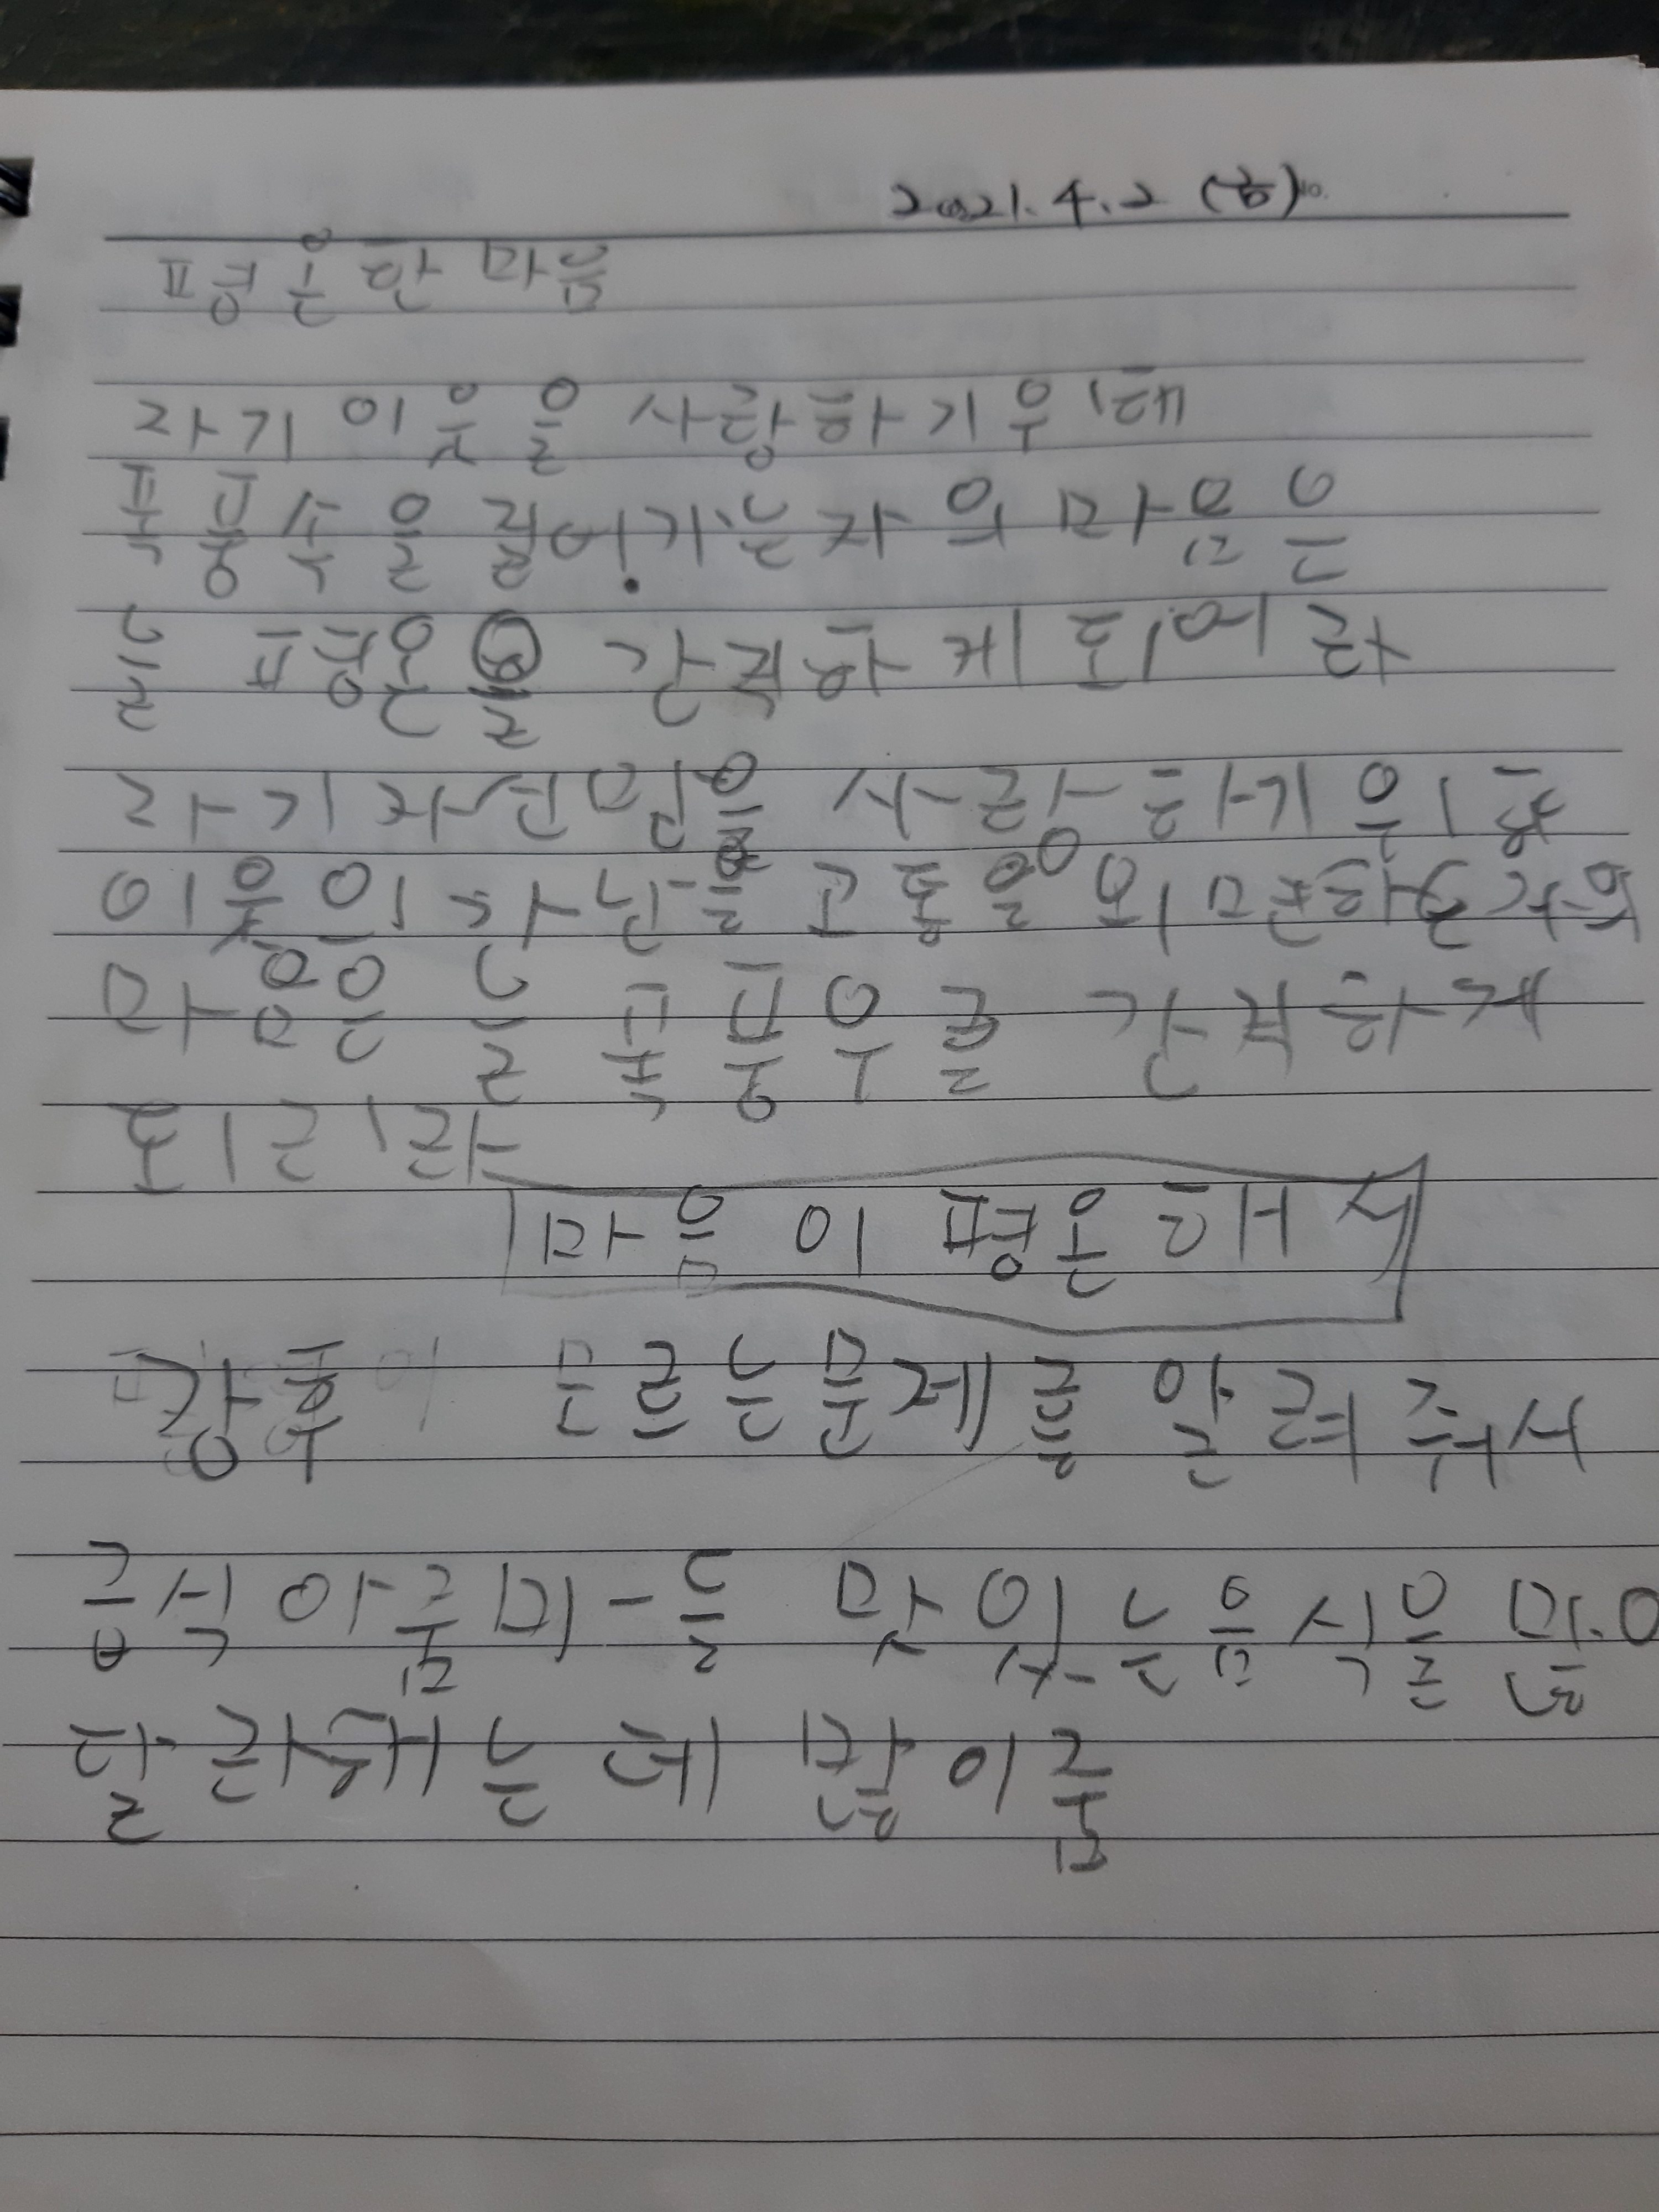 2021. 4. 2 (금)
평온한 마음
자기 이웃을 사랑하기위해
폭풍속을 걸어가는자의 마음은
늘 평온을 간직하게 되어라
자기자신만을 사랑하기위해
이웃의 가난을 고통을 외면하는자의
마음은 늘 폭풍우를 간직하게
되리라
마음이 평온해서
강후 모르는문제를 알려줘서
급식아줌마들 맛있는음식을
달라해는데 많이줌